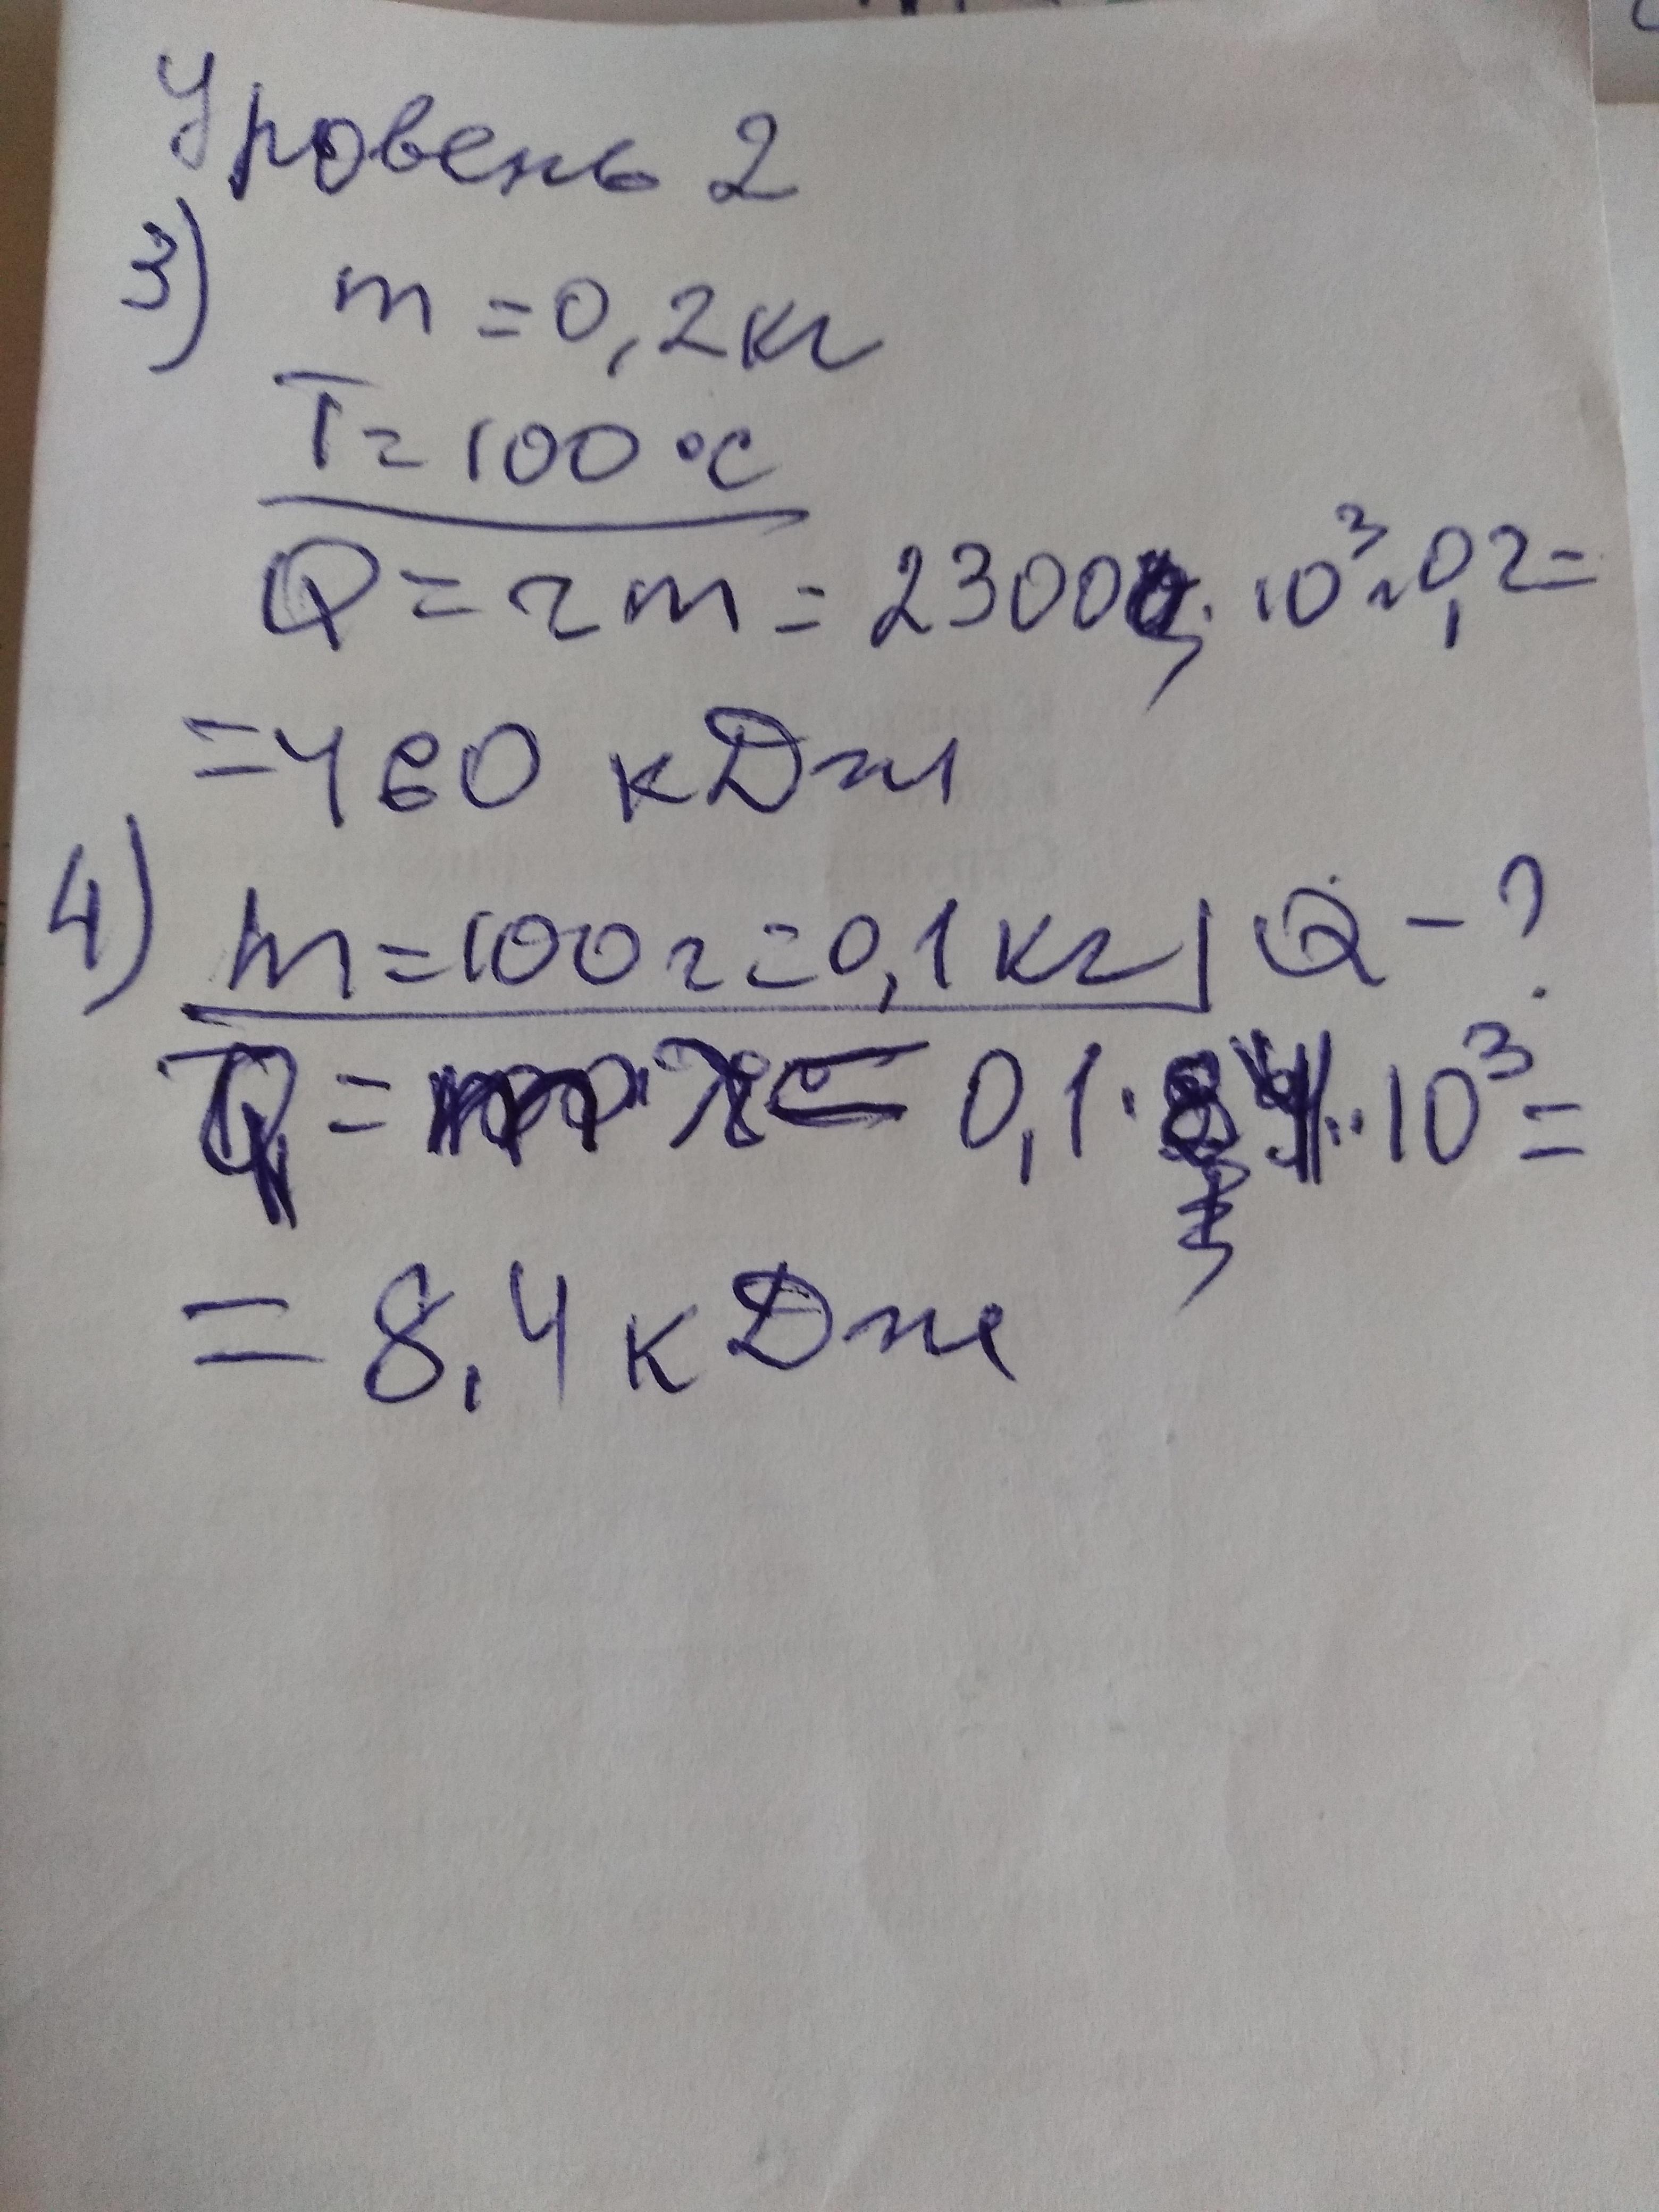 Уровень 2
3) m = 0,2 кг
T = 100 °C
Q = rm = 2300 · 10³ · 0,2 =
= 460 кДж
4) m = 100 г = 0,1 кг Q - ?
Q = 0,1 · 84 · 10³ =
= 8,4 кДж